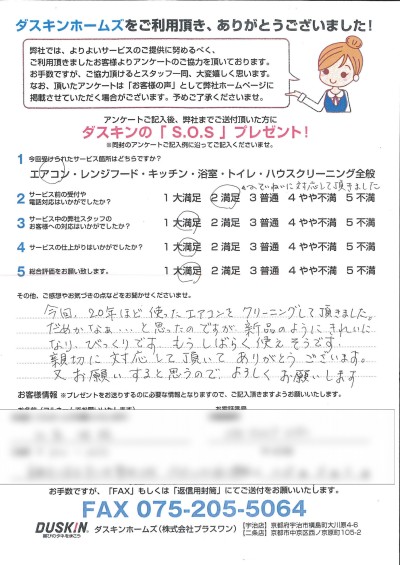 ダスキンホームズをご利用頂き、ありがとうございました！
弊社では、よりよいサービスのご提供に努めるべく、
ご利用頂きましたお客様よりアンケートのご協力を頂いております。
お手数ですが、ご協力頂けるとスタッフ一同、大変嬉しく思います。
なお、頂いたアンケートは「お客様の声」として弊社ホームページに
掲載させていただく場合がございます。予めご了承くださいませ。
アンケートご記入後、弊社までご送付頂いた方に
ダスキンの「S.O.S」プレゼント！
※同封のアンケートご記入例に沿ってご記入くださいませ。
1 今回受けられたサービス箇所はどちらですか？
エアコン・レンジフード・キッチン・浴室・トイレ・ハウスクリーニング全般
ていねいに対応して頂きました
2 サービス前の受付や
電話対応はいかがでしたか？ 1 大満足 2 満足 3 普通 4 やや不満 5 不満
3 サービス中の弊社スタッフの
お客様への対応はいかがでしたか？ 1 大満足 2 満足 3 普通 4 やや不満 5 不満
4 サービスの仕上がりはいかがでしたか？ 1 大満足 2 満足 3 普通 4 やや不満 5 不満
5 総合評価をお願い致します。 1 大満足 2 満足 3 普通 4 やや不満 5 不満
その他、ご感想やお気づきの点などをお聞かせくださいませ。
今回、20年ほど使ったエアコンをクリーニングして頂きました。
だめかなぁ…と思ったのですが、新品のようにきれいに
なり、びっくりです。もうしばらく使えそうです。
親切に対応して頂いてありがとうございます。
又お願いすると思うので、よろしくお願いします
お客様情報 ※プレゼントをお送りするのに必要な情報となりますので、ご記入頂きますようお願いいたします。
お手数ですが、「FAX」もしくは「返信用封筒」にてご送付をお願いいたします。
FAX 075-205-5064
DUSKIN
喜びのタネをまこう
ダスキンホームズ（株式会社プラスワン）
［宇治店］京都府宇治市槇島町大川原4-6
［二条店］京都市中京区西ノ京原町105-2